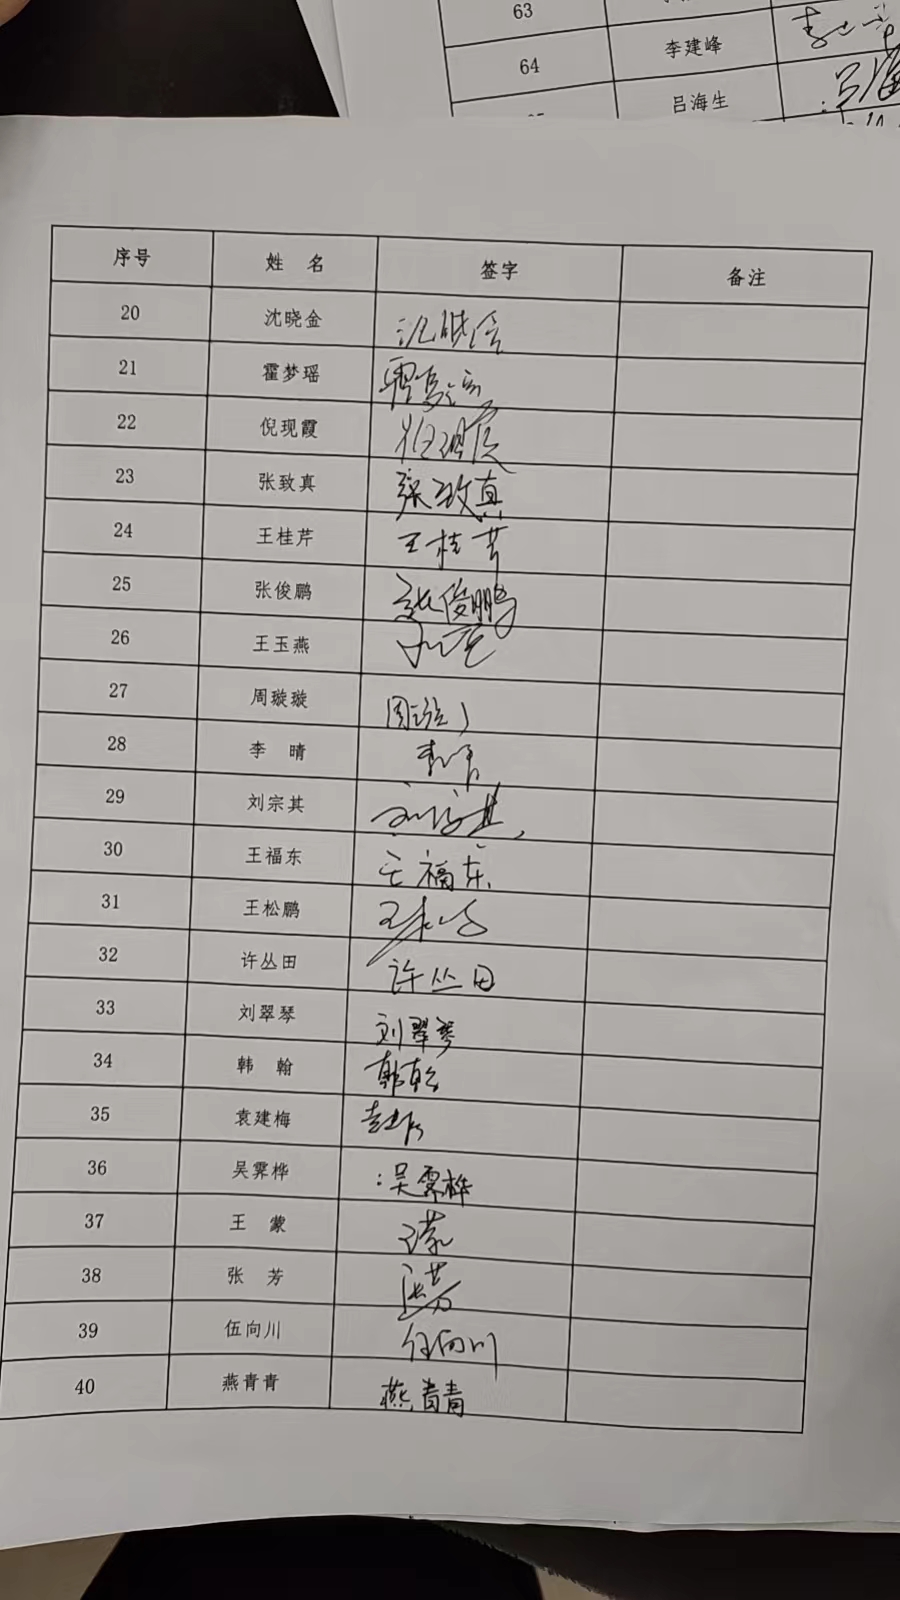 63
64 李建峰
吕海生
序号 姓 名 签字 备注
20 沈晓金 沈晓金
21 霍梦瑶
22 倪现霞 倪现霞
23 张致真 张致真
24 王桂芹 王桂芹
25 张俊鹏 张俊鹏
26 王玉燕
27 周璇璇
28 李 晴 李晴
29 刘宗其 刘宗其
30 王福东 王福东
31 王松鹏 王松鹏
32 许丛田 许丛田
33 刘翠琴 刘翠琴
34 韩 翰 韩翰
35 袁建梅
36 吴霁桦 吴霁桦
37 王 蒙 王蒙
38 张 芳 张芳
39 伍向川 伍向川
40 燕青青 燕青青